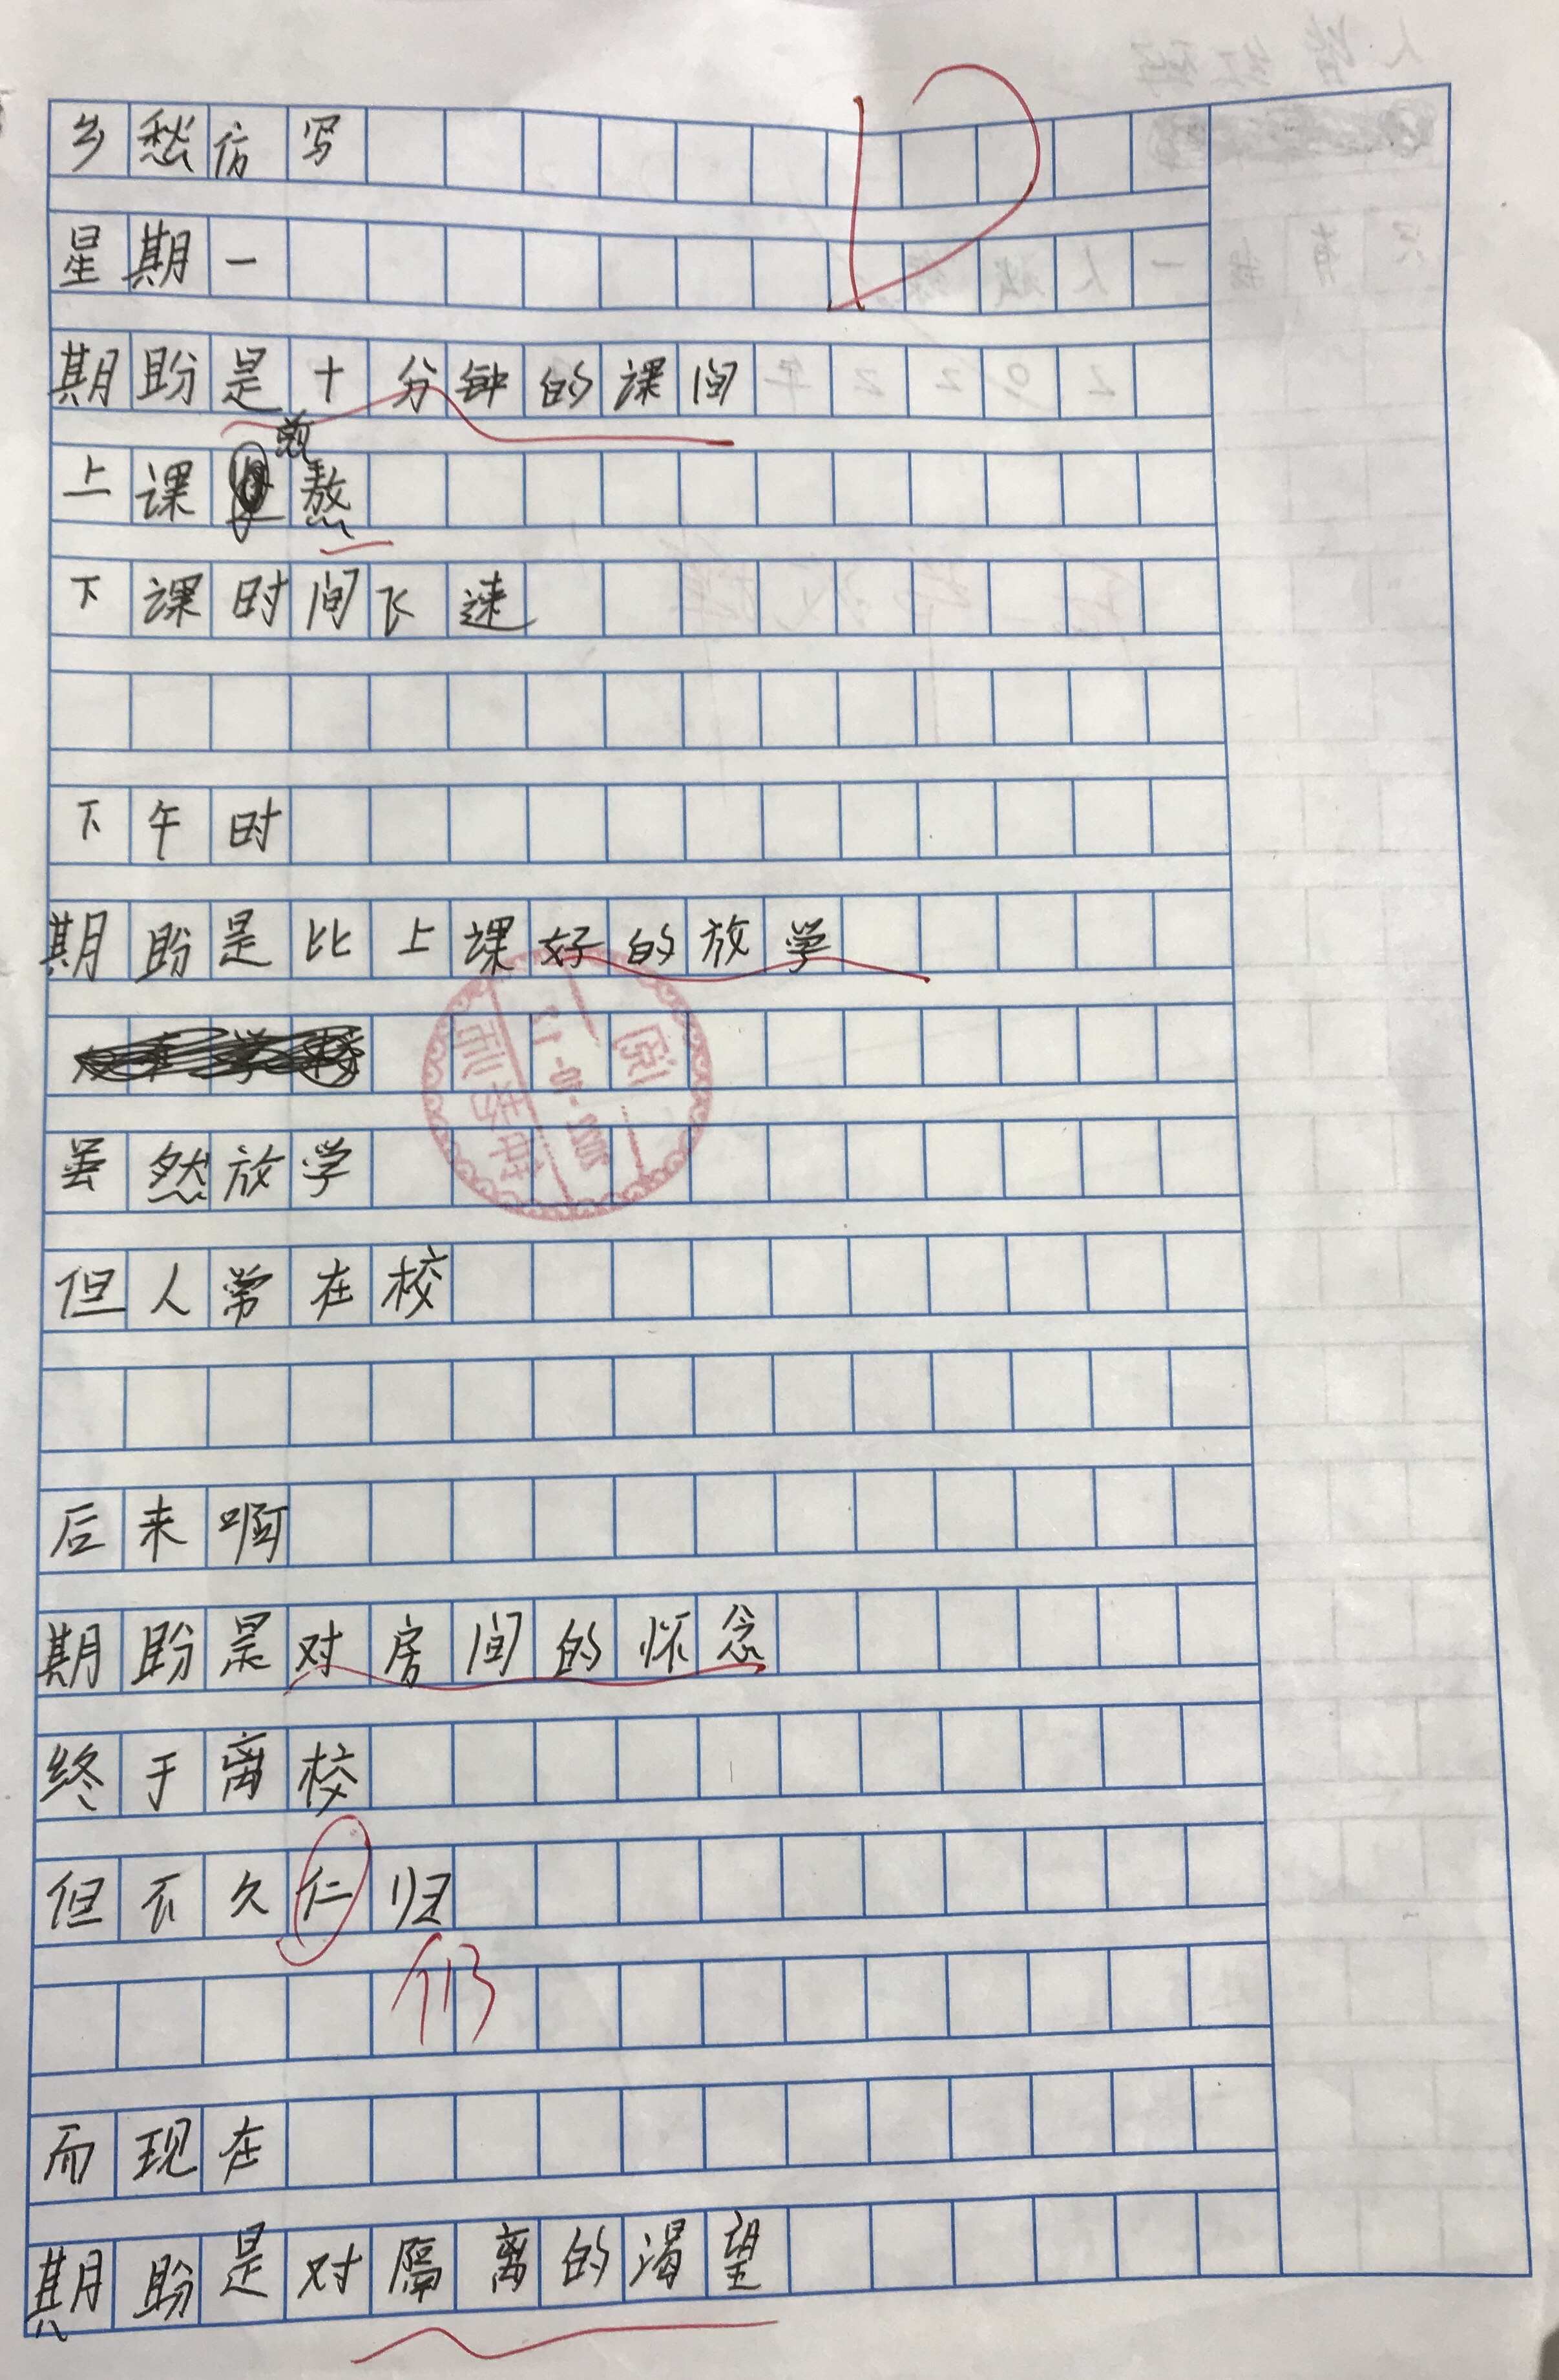 乡愁仿写
星期一
期盼是十分钟的课间
上课煎熬
下课时间飞速
下午时
期盼是比上课好的放学
虽然放学
但人常在校
后来啊
期盼是对房间的怀念
终于离校
但不久仁归
仍
而现在
期盼是对隔离的渴望